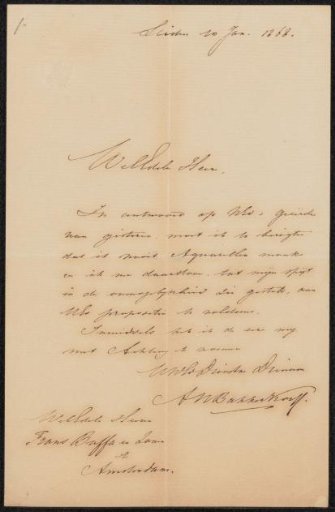 Leiden 20 Jan. 1868.
WelEdele Heer,
In antwoord op UEd.
van gisteren moet ik te berigten
dat ik nooit Aquarellen maak
en ik me daardoor, tot mijn spijt
in de onmogelijkheid zie gesteld, aan
UEd propositie te voldoen.
Inmiddels heb ik de eer mij
met Achting te noemen
UWEd Dienstw Dienaar
WelEdele Heer
Frans Buffa en Zonen
te
Amsterdam.